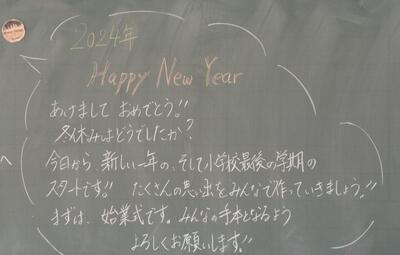 2024年
Happy New Year
あけまして おめでとう!!
冬休みはどうでしたか?
今日から、新しい一年の、そして小学校最後の学期の
スタートです!! たくさんの思い出をみんなで作っていきましょう!!
まずは、始業式です。みんなの手本となるよう
よろしくお願いします!!